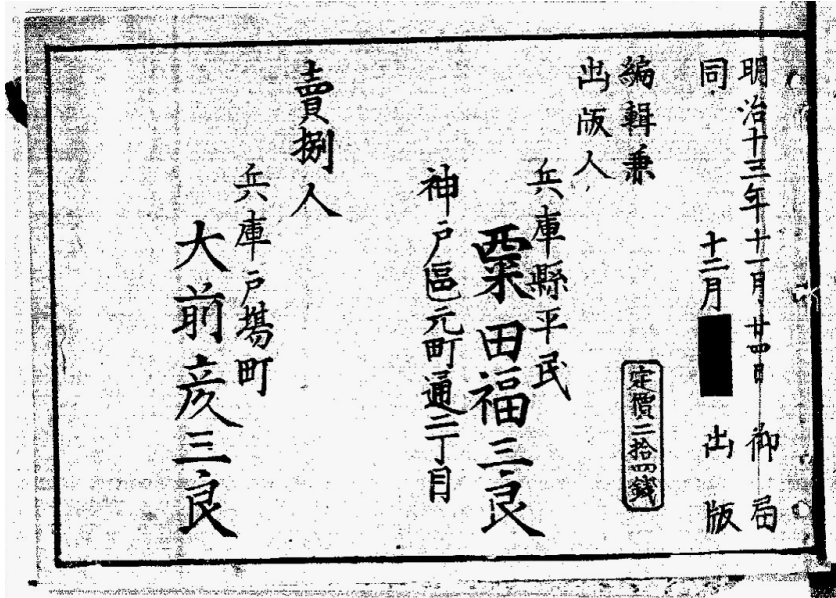 明治十三年十一月廿四日 御届
同 十二月 出版
定價二拾四錢
編輯兼
出版人
兵庫縣平民
粟田福三良
神戸區元町通二丁目
賣捌人
兵庫戸場町
大前彦三良